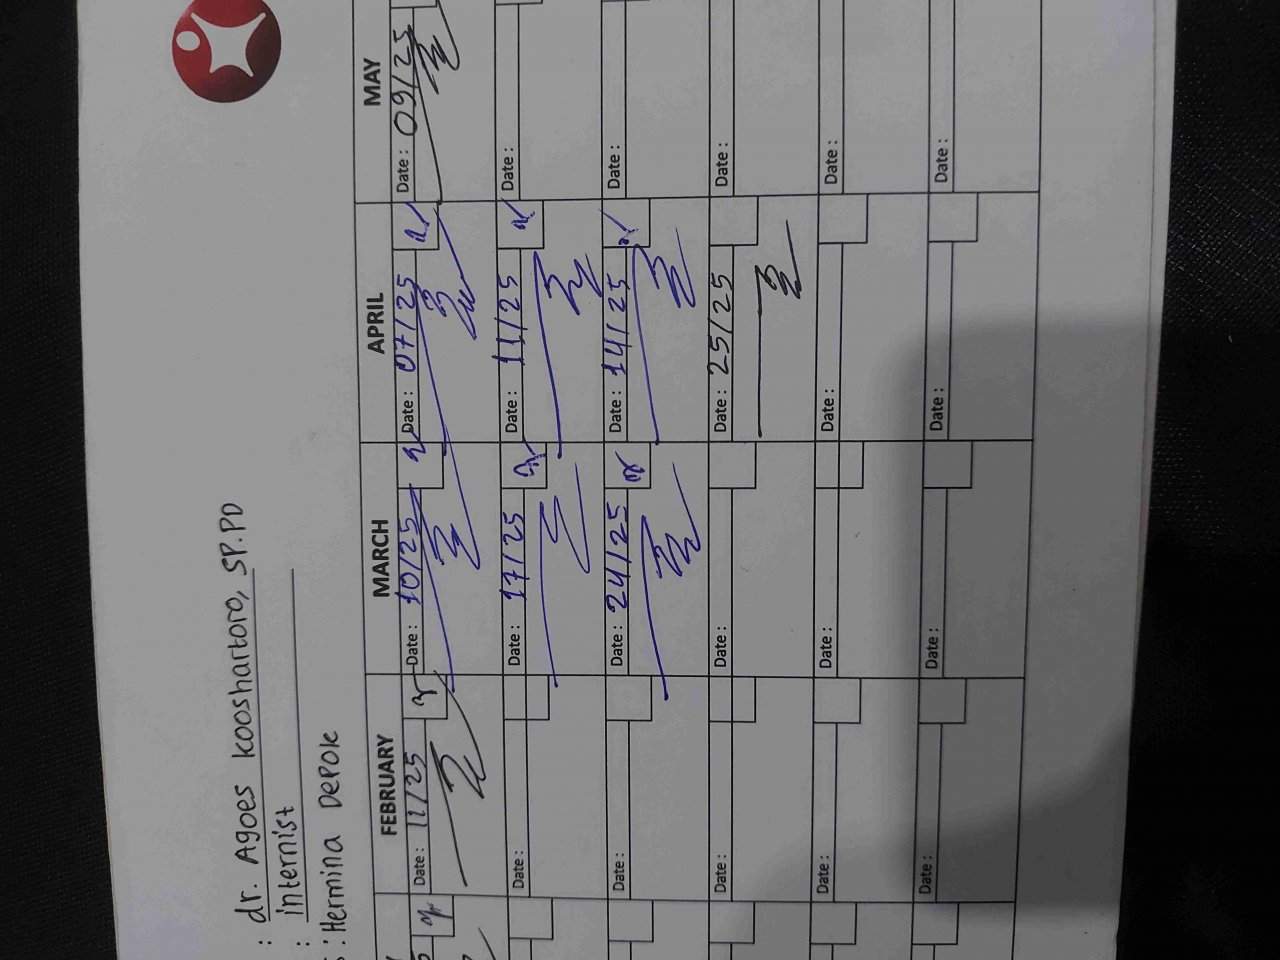 : dr. Agoes kooshartoro, SP.PD
: internist
: Hermina Depok
FEBRUARY MARCH APRIL MAY
Date : 12/25 Date : 10/25 Date : 07/25 Date : 09/25
Date : Date : 17/25 Date : 11/25 Date :
Date : Date : 24/25 Date : 14/25 Date :
Date : Date : Date : 25/25 Date :
Date : Date : Date : Date :
Date : Date : Date : Date :